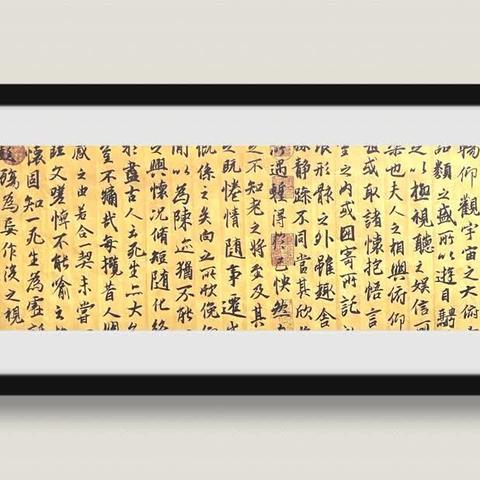 暢仰觀宇宙之大俯
品類之盛所以遊目騁
以極視聽之娛信可
樂也夫人之相與俯仰
或取諸懷抱悟言
之內或因寄所託
浪形骸之外雖趣舍
殊靜躁不同當其欣
所遇蹔得於己快然
之不知老之將至及其
之既惓情隨事遷
慨係之矣向之所欣俛仰
以為陳迹猶不能
之興懷況脩短隨化
於盡古人云死生亦大
豈不痛哉每攬昔人
感之由若合一契未嘗
文嗟悼不能喻之
懷固知一死生為虛
殤為妄作後之視